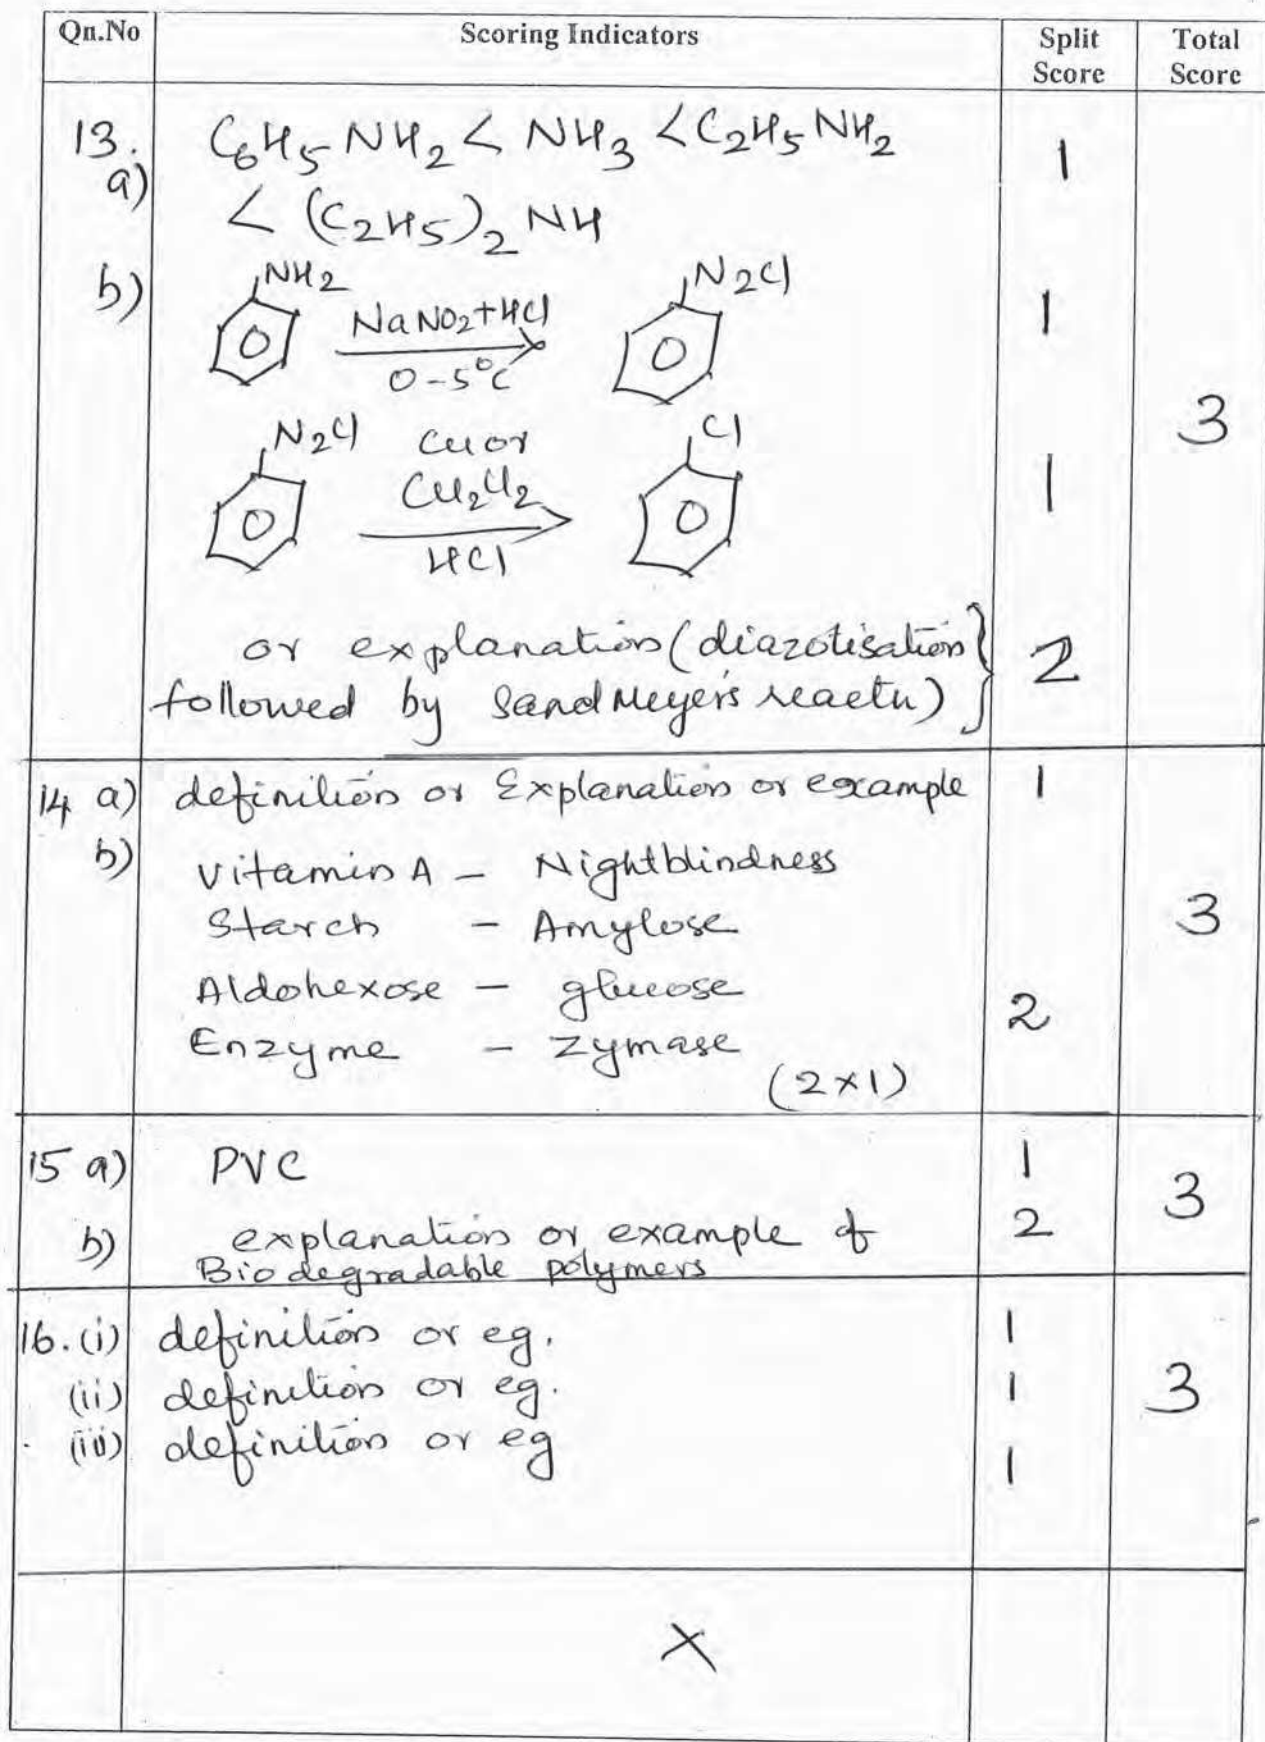 Qn.No Scoring Indicators Split Score Total Score
13. a) C6H5NH2 < NH3 < C2H5NH2 1
< (C2H5)2 NH
b) NH2 NaNO2+HCl 0-5°C N2Cl 1
3
N2Cl Cu or Cu2Cl2 HCl Cl 1
or explanation (diazotisation
followed by Sand Meyer's reactn) } 2
14 a) definition or Explanation or example 1
b) Vitamin A - Nightblindness
Starch - Amylose 3
Aldohexose - glucose 2
Enzyme - Zymase
(2×1)
15 a) PVC 1 3
b) explanation or example of 2
Biodegradable polymers
16. (i) definition or eg. 1
(ii) definition or eg. 1 3
(iii) definition or eg 1
X